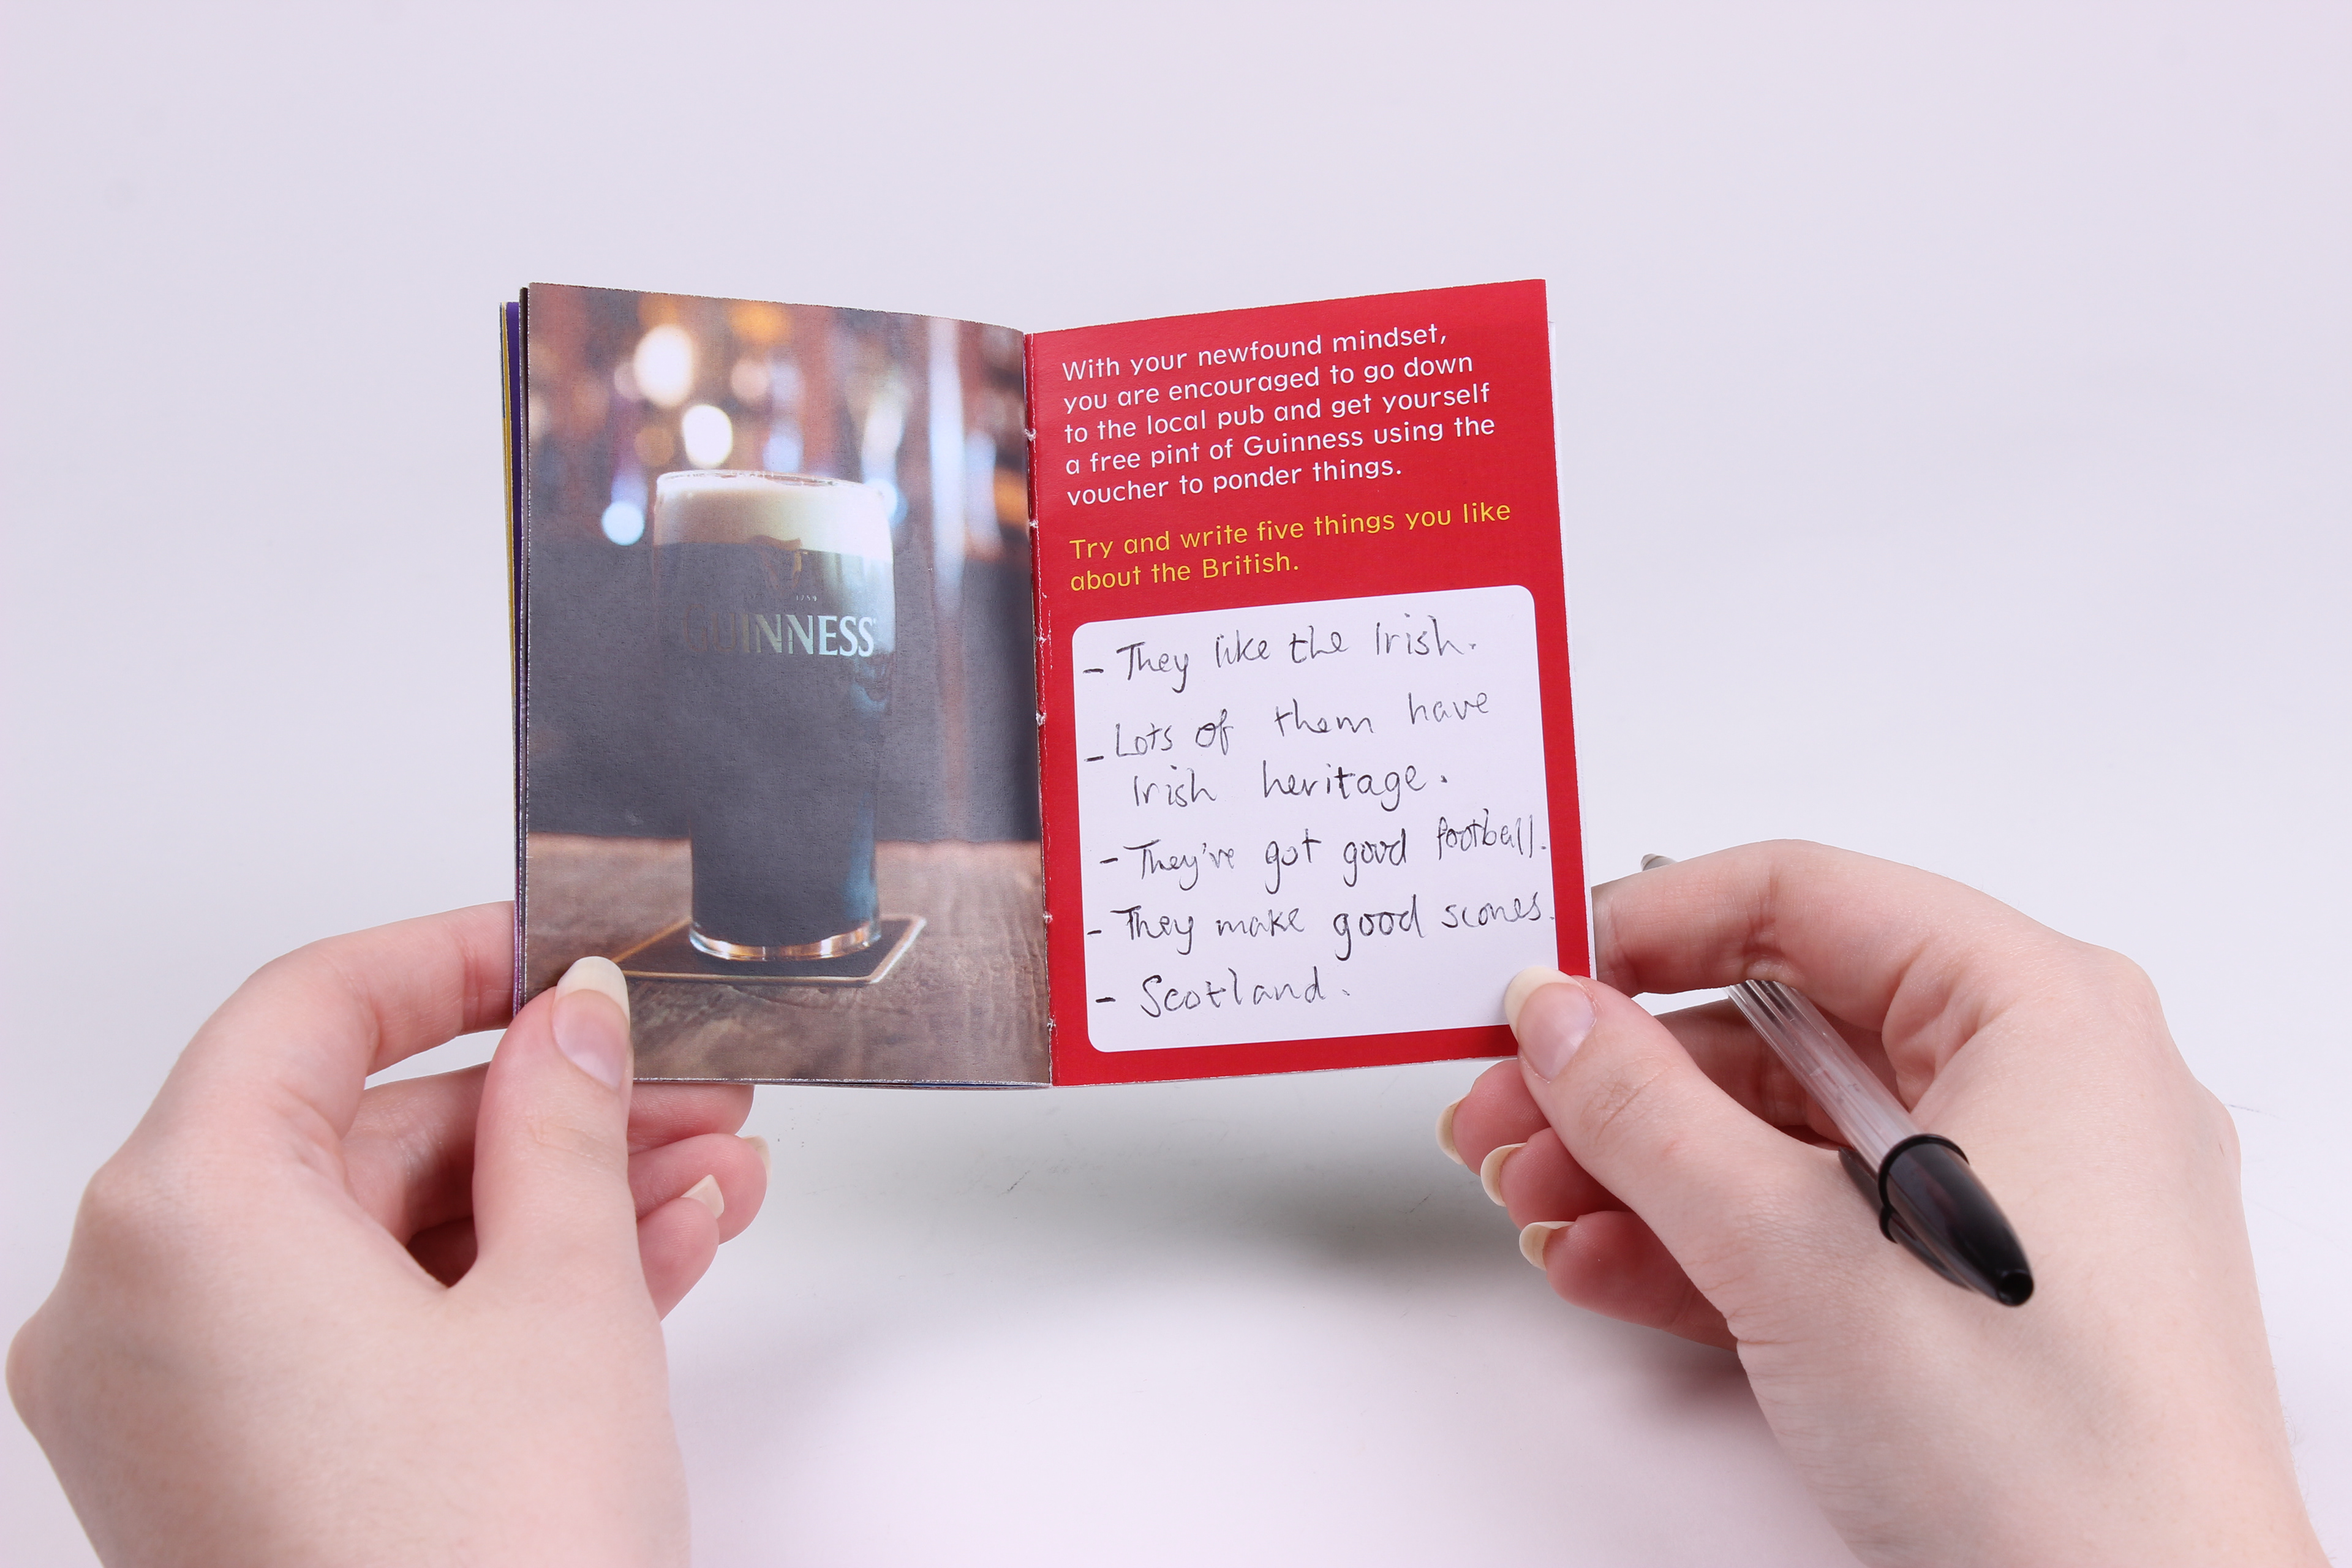 GUINNESS
With your newfound mindset,
you are encouraged to go down
to the local pub and get yourself
a free pint of Guinness using the
voucher to ponder things.
Try and write five things you like
about the British.
- They like the Irish.
- Lots of them have
Irish heritage.
- They've got good football.
- They make good scones.
- Scotland.